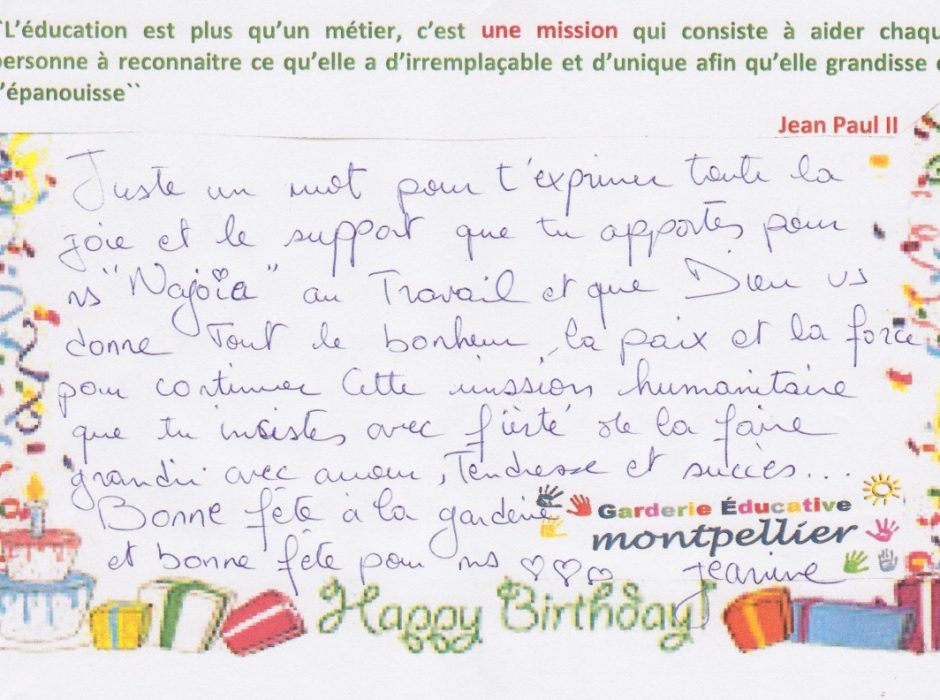 ``L'éducation est plus qu'un métier, c'est une mission qui consiste à aider chaqu
personne à reconnaitre ce qu'elle a d'irremplaçable et d'unique afin qu'elle grandisse
s'épanouisse``
Jean Paul II
Juste un mot pour t'exprimer toute la
joie et le support que tu apportes pour
ns "Najoia" au Travail et que Dieu vs
donne Tout le bonheur, la paix et la force
pour continuer Cette mission humanitaire
que tu insistes avec fierté de la faire
grandir avec amour, Tendresse et succès...
Bonne fête à la garderie
Garderie Éducative
montpellier
et bonne fête pour ns
Jeanine
Happy Birthday!